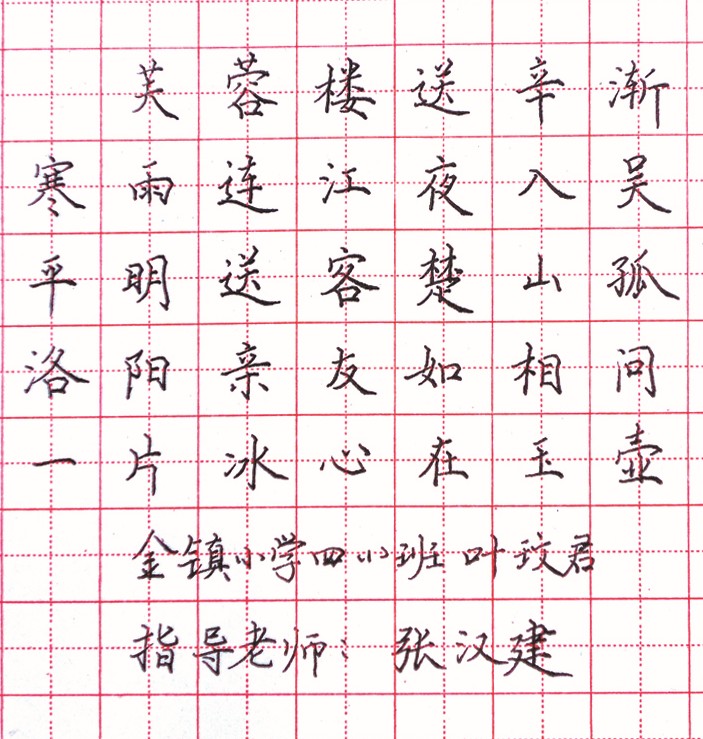 芙蓉楼送辛渐
寒雨连江夜入吴
平明送客楚山孤
洛阳亲友如相问
一片冰心在玉壶
金镇小学四小班 叶玟君
指导老师：张汉建